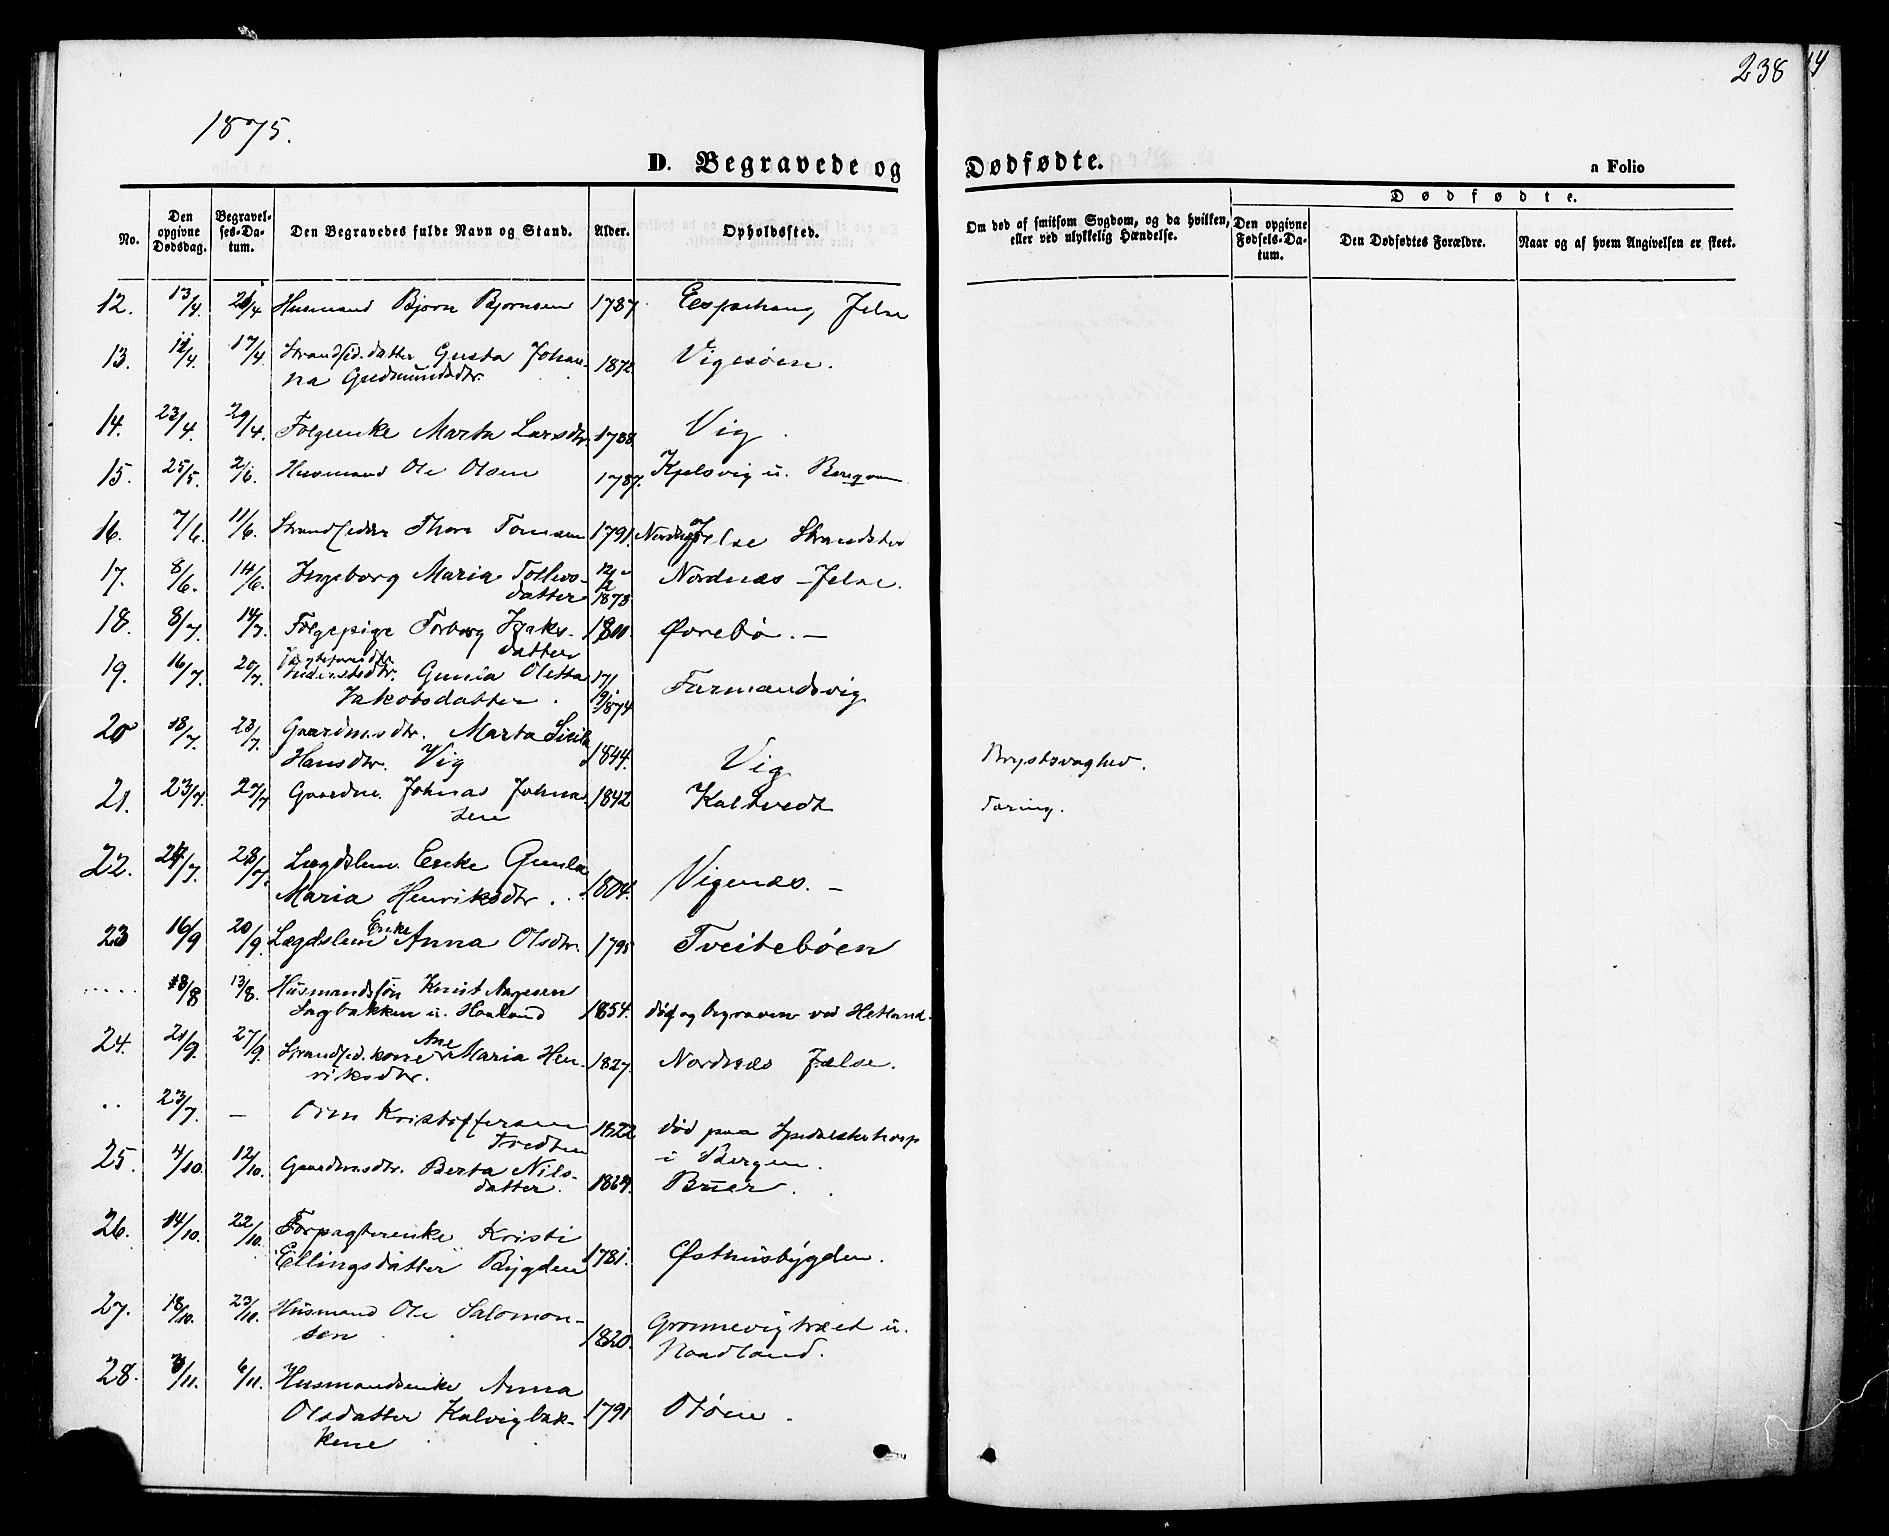 238
1875.
D. Begravede og Dødfødte.
n Folio
No.
Den opgivne Dødsdag.
Begravelses-Datum.
Den Begravedes fulde Navn og Stand.
Alder.
Opholdssted.
Om død af smitsom Sygdom, og da hvilken, eller ved ulykkelig Hændelse.
Dødfødte.
Den opgivne Fødsels-Datum.
Den Dødfødtes Forældre.
Naar og af hvem Angivelsen er skeet.
12. 13/4. 21/4 Husmand Bjørn Bjørnsen 1787. Espehaug Jelse
13. 11/4 17/4. Strandsid.datter Gusta Johan-
na Gudmundsdtr. 1872 Vigesøen.
14. 23/4. 29/4. Folgeenke Marta Larsdtr. 1788. Vig.
15. 25/5. 2/6. Husmand Ole Olsen 1787. Kjølsvig u.
16. 7/6. 11/6. Strandsidder Thore Tomsen 1791. Nordnæs Jelse Strandsted
17. 8/6. 14/6. Ingeborg Maria Tollevs-
datter 12/2 1873 Nordnæs - Jelse.
18. 8/7. 14/7. Folgepige Torborg Isaks-
datter 1800. Ørebø. -
19. 16/7. 20/7. Inderstedtr. Gunla Oletta
Jakobsdatter. 17/1 1874 Furmandsvig
20 18/7. 23/7. Gaardmsdtr. Marta Sisila
Hansdtr. Vig 1844. Vig Brystsvaghed.
21. 23/7. 27/7 Gaardm. Johnas Johna-
sen 1842 Kaltvedt Tæring.
22. 24/7. 28/7. Lægdslem Enke Gunla
Maria Henriksdtr. 1804. Vigenæs. -
23 16/9 20/9. Lægdslem Enke Anna Olsdtr. 1795 Tveitebøen
..... 8/8 13/8. Husmandssøn Knut Aagesen
Sagbakken u. Haaland 1854. død og begraven ved Hetland.
24. 21/9. 27/9. Strandsid.kone Ane Maria Hen-
riksdtr. 1827. Nordnæs Jælse.
.. 23/7. - Kristoffersen
Tvedten 1822 død paa Spedalskehosp
i Bergen.
25. 4/10. 12/10. Gaardmsdtr. Berta Nils-
datter. 1869. Buer.
26. 14/10. 22/10. Forpagterenke Kristi
Ellingsdatter Bygden 1781. Østhusbygden.
27. 18/10. 23/10. Husmand Ole Salomon-
sen 1820. Grønnevigtræet u.
Haadland.
28. 3/11. 6/11. Husmandsenke Anna
Olsdatter Kalvigbak-
kene 1791 Otøen.